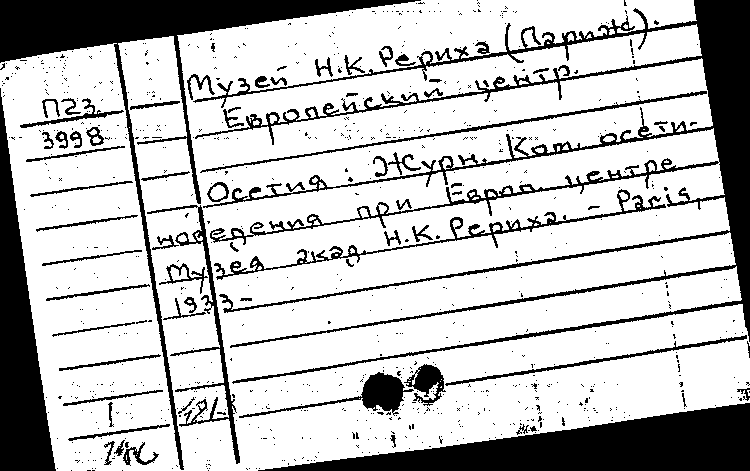 Музей Н.К. Рериха (Париж).
Европейский центр.
П23
3998
Осетия: Журн. Ком. осети-
новедения при Европ. центре
Музея акад. Н.К. Рериха. - Paris,
1933-
1